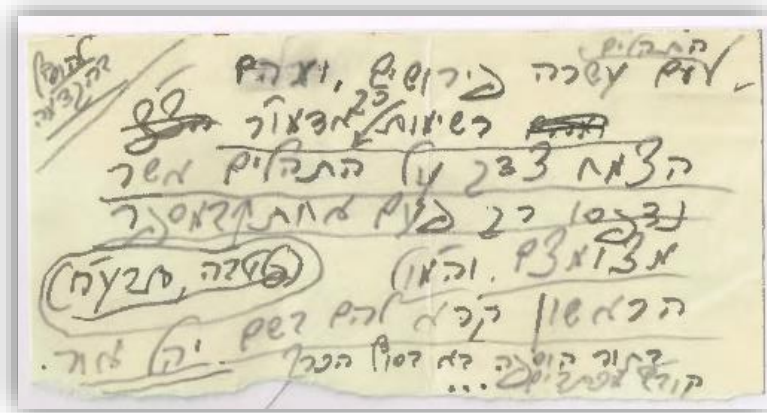 התהלים
עם עשרה פירושים, ועהם
בהקדמה
רשימות כ"ק אדמו"ר
הצמח צדק על התהלים אשר
נדפסו רק פעם אחת במספר
מצומצם. והמו"ל
הראשון קרא להם בשם יהל אור.
בתור הוספה בא בסוף הכרך
קובץ מכתבים ...